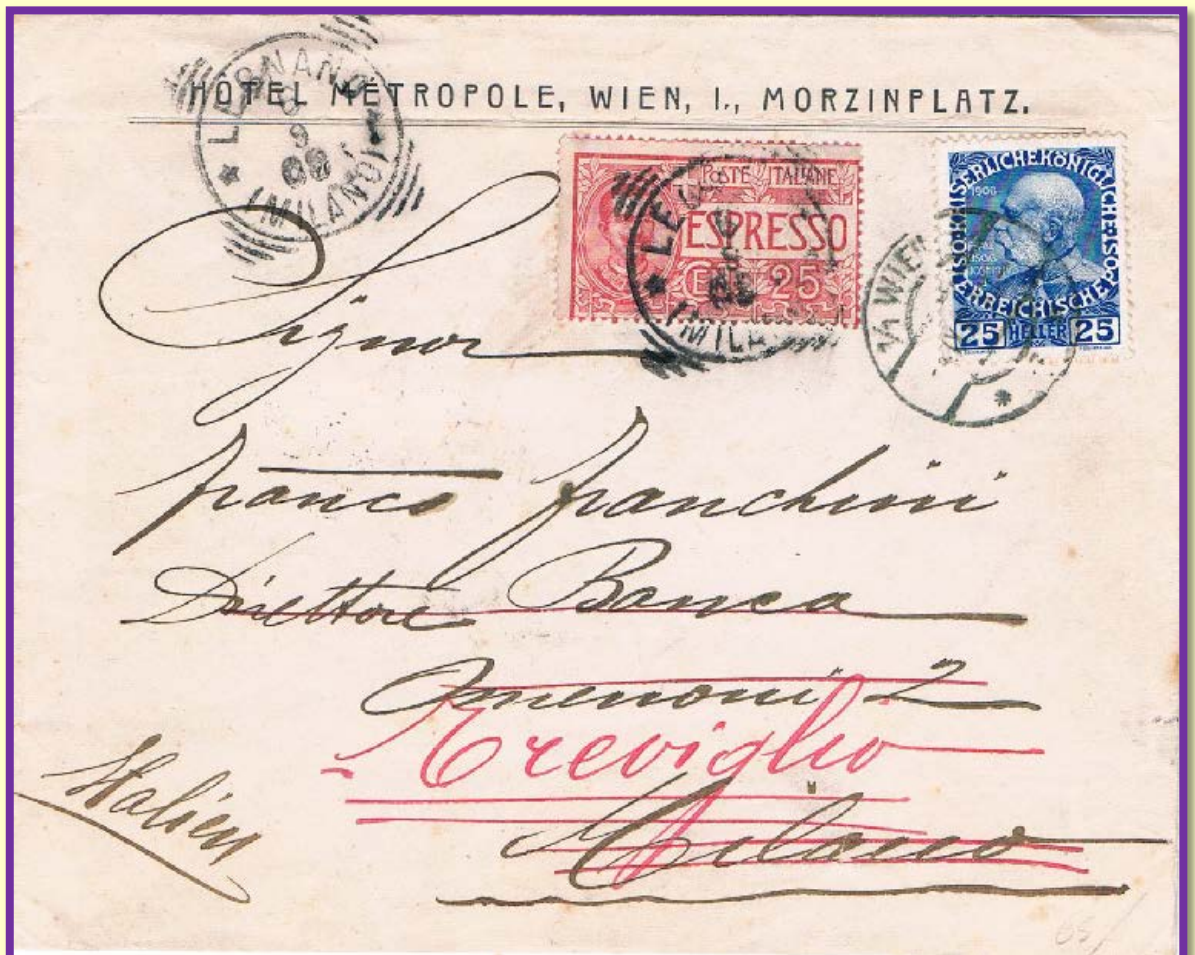 HÔTEL MÉTROPOLE, WIEN, I., MORZINPLATZ.
LEGNANO
9
09
(MILANO)
POSTE ITALIANE
ESPRESSO
CENT 25
LEGNANO
(MILA
KAISERLICHE KÖNIGLICHE ÖSTERREICHISCHE POST
1908
1908
25 HELLER 25
WIEN
Signor
Franco Franchini
Direttore Banca
Omenoni 2
Treviglio
Milano
Italien